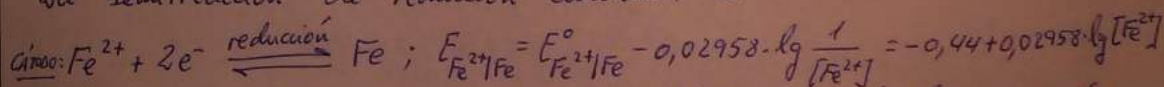 Cátodo: Fe²⁺ + 2e⁻ reducción ⇌ Fe ; E_Fe²⁺/Fe = E°_Fe²⁺/Fe - 0,02958·lg 1/[Fe²⁺] = -0,44+0,02958·lg[Fe²⁺]